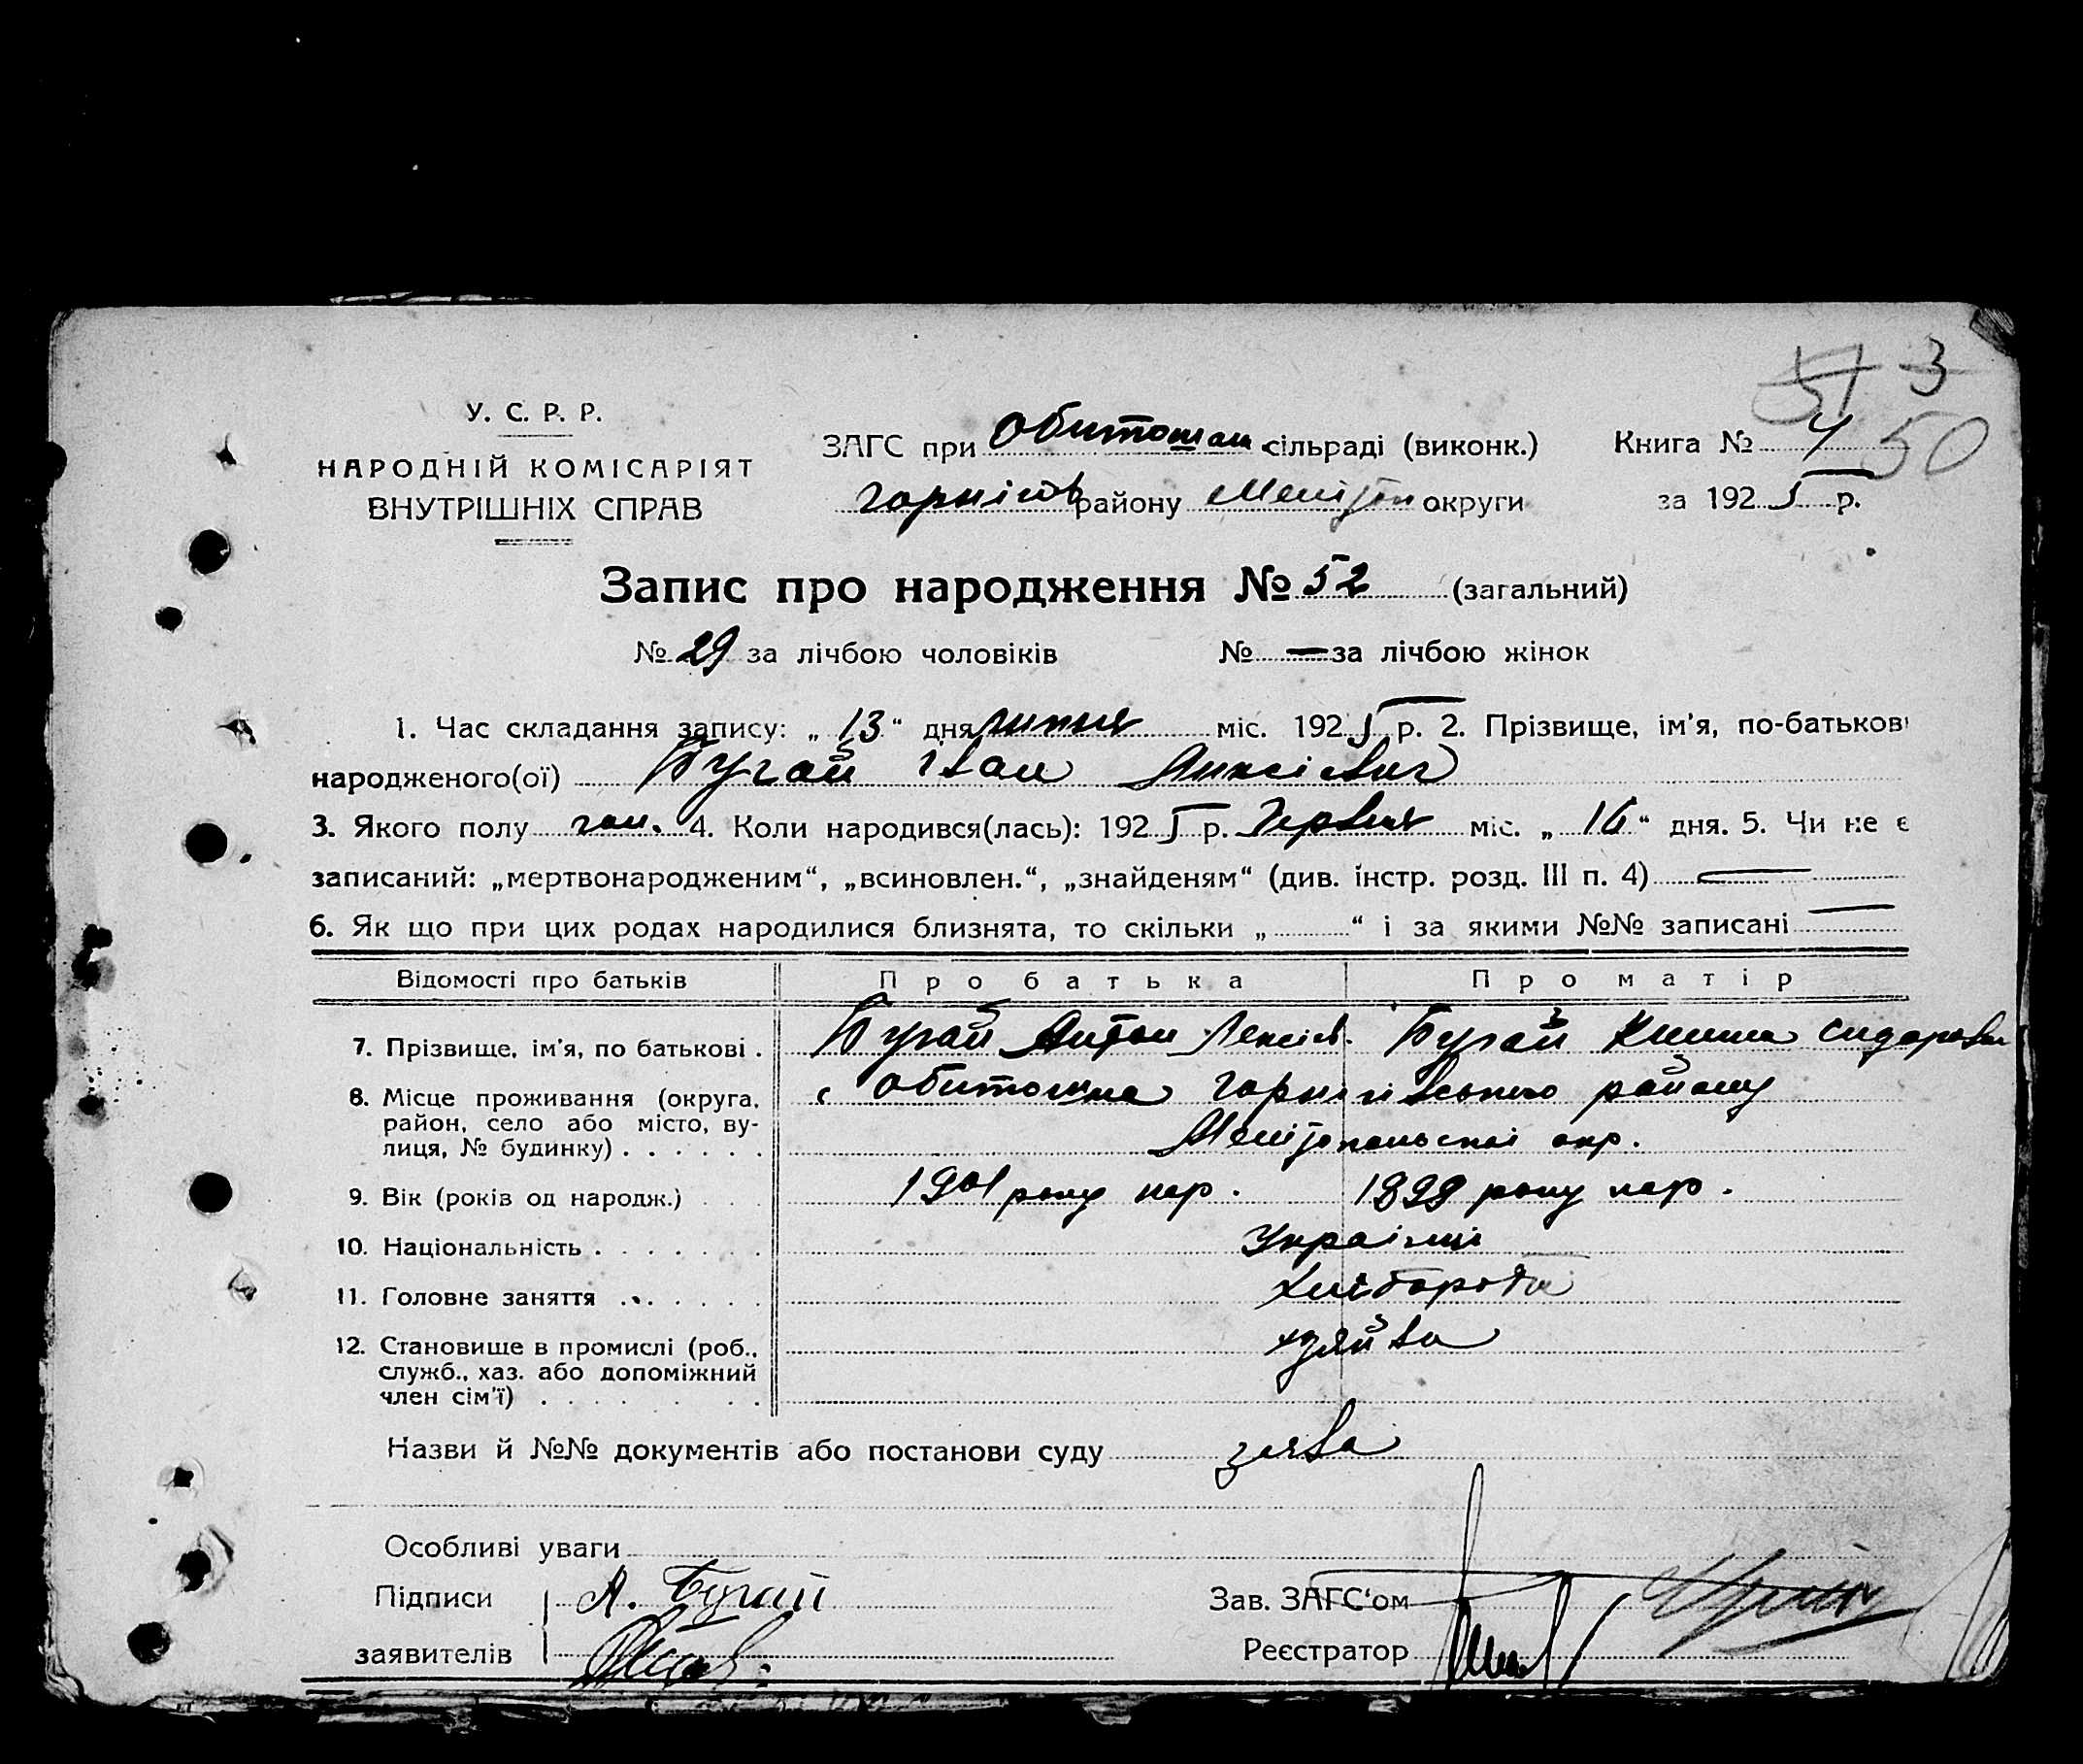 51 3
50
У. С. Р. Р.
НАРОДНІЙ КОМІСАРІЯТ
ВНУТРІШНІХ СПРАВ
ЗАГС при Обиточан сільраді (виконк.)
району Меліто округи
Книга №
за 1925 р.
Запис про народження № 52 (загальний)
№ 29 за лічбою чоловіків № — за лічбою жінок
1. Час складання запису: „ 13 “ дня липня міс. 1925 р. 2. Прізвище, ім'я, по-батькові
народженого(ої) Бугай Іван
3. Якого полу чол. 4. Коли народився(лась): 1925 р. Червня міс. „ 16 “ дня. 5. Чи не є
записаний: „мертвонародженим“, „всиновлен.“, „знайденям“ (див. інстр. розд. III п. 4) —
6. Як що при цих родах народилися близнята, то скільки „ “ і за якими №№ записані —
Відомості про батьків Про батька Про матір
7. Прізвище, ім'я, по батькові . Бугай Антон Лексієв. Бугай
8. Місце проживання (округа, с Обиточна району
район, село або місто, ву-
лиця, № будинку) . . . . . . Мелітопольскоі окр.
9. Вік (років од народж.) 1901 року нар. 1899 року нар.
10. Національність . . . . . . . Українці
11. Головне заняття . . . . . . Хлібороби
12. Становище в промислі (роб., хзяйва
служб., хаз. або допоміжний
член сім'ї) . . . . . . . .
Назви й №№ документів або постанови суду заява
Особливі уваги
Підписи А. Бугай Зав. ЗАГС'ом
заявителів Реєстратор